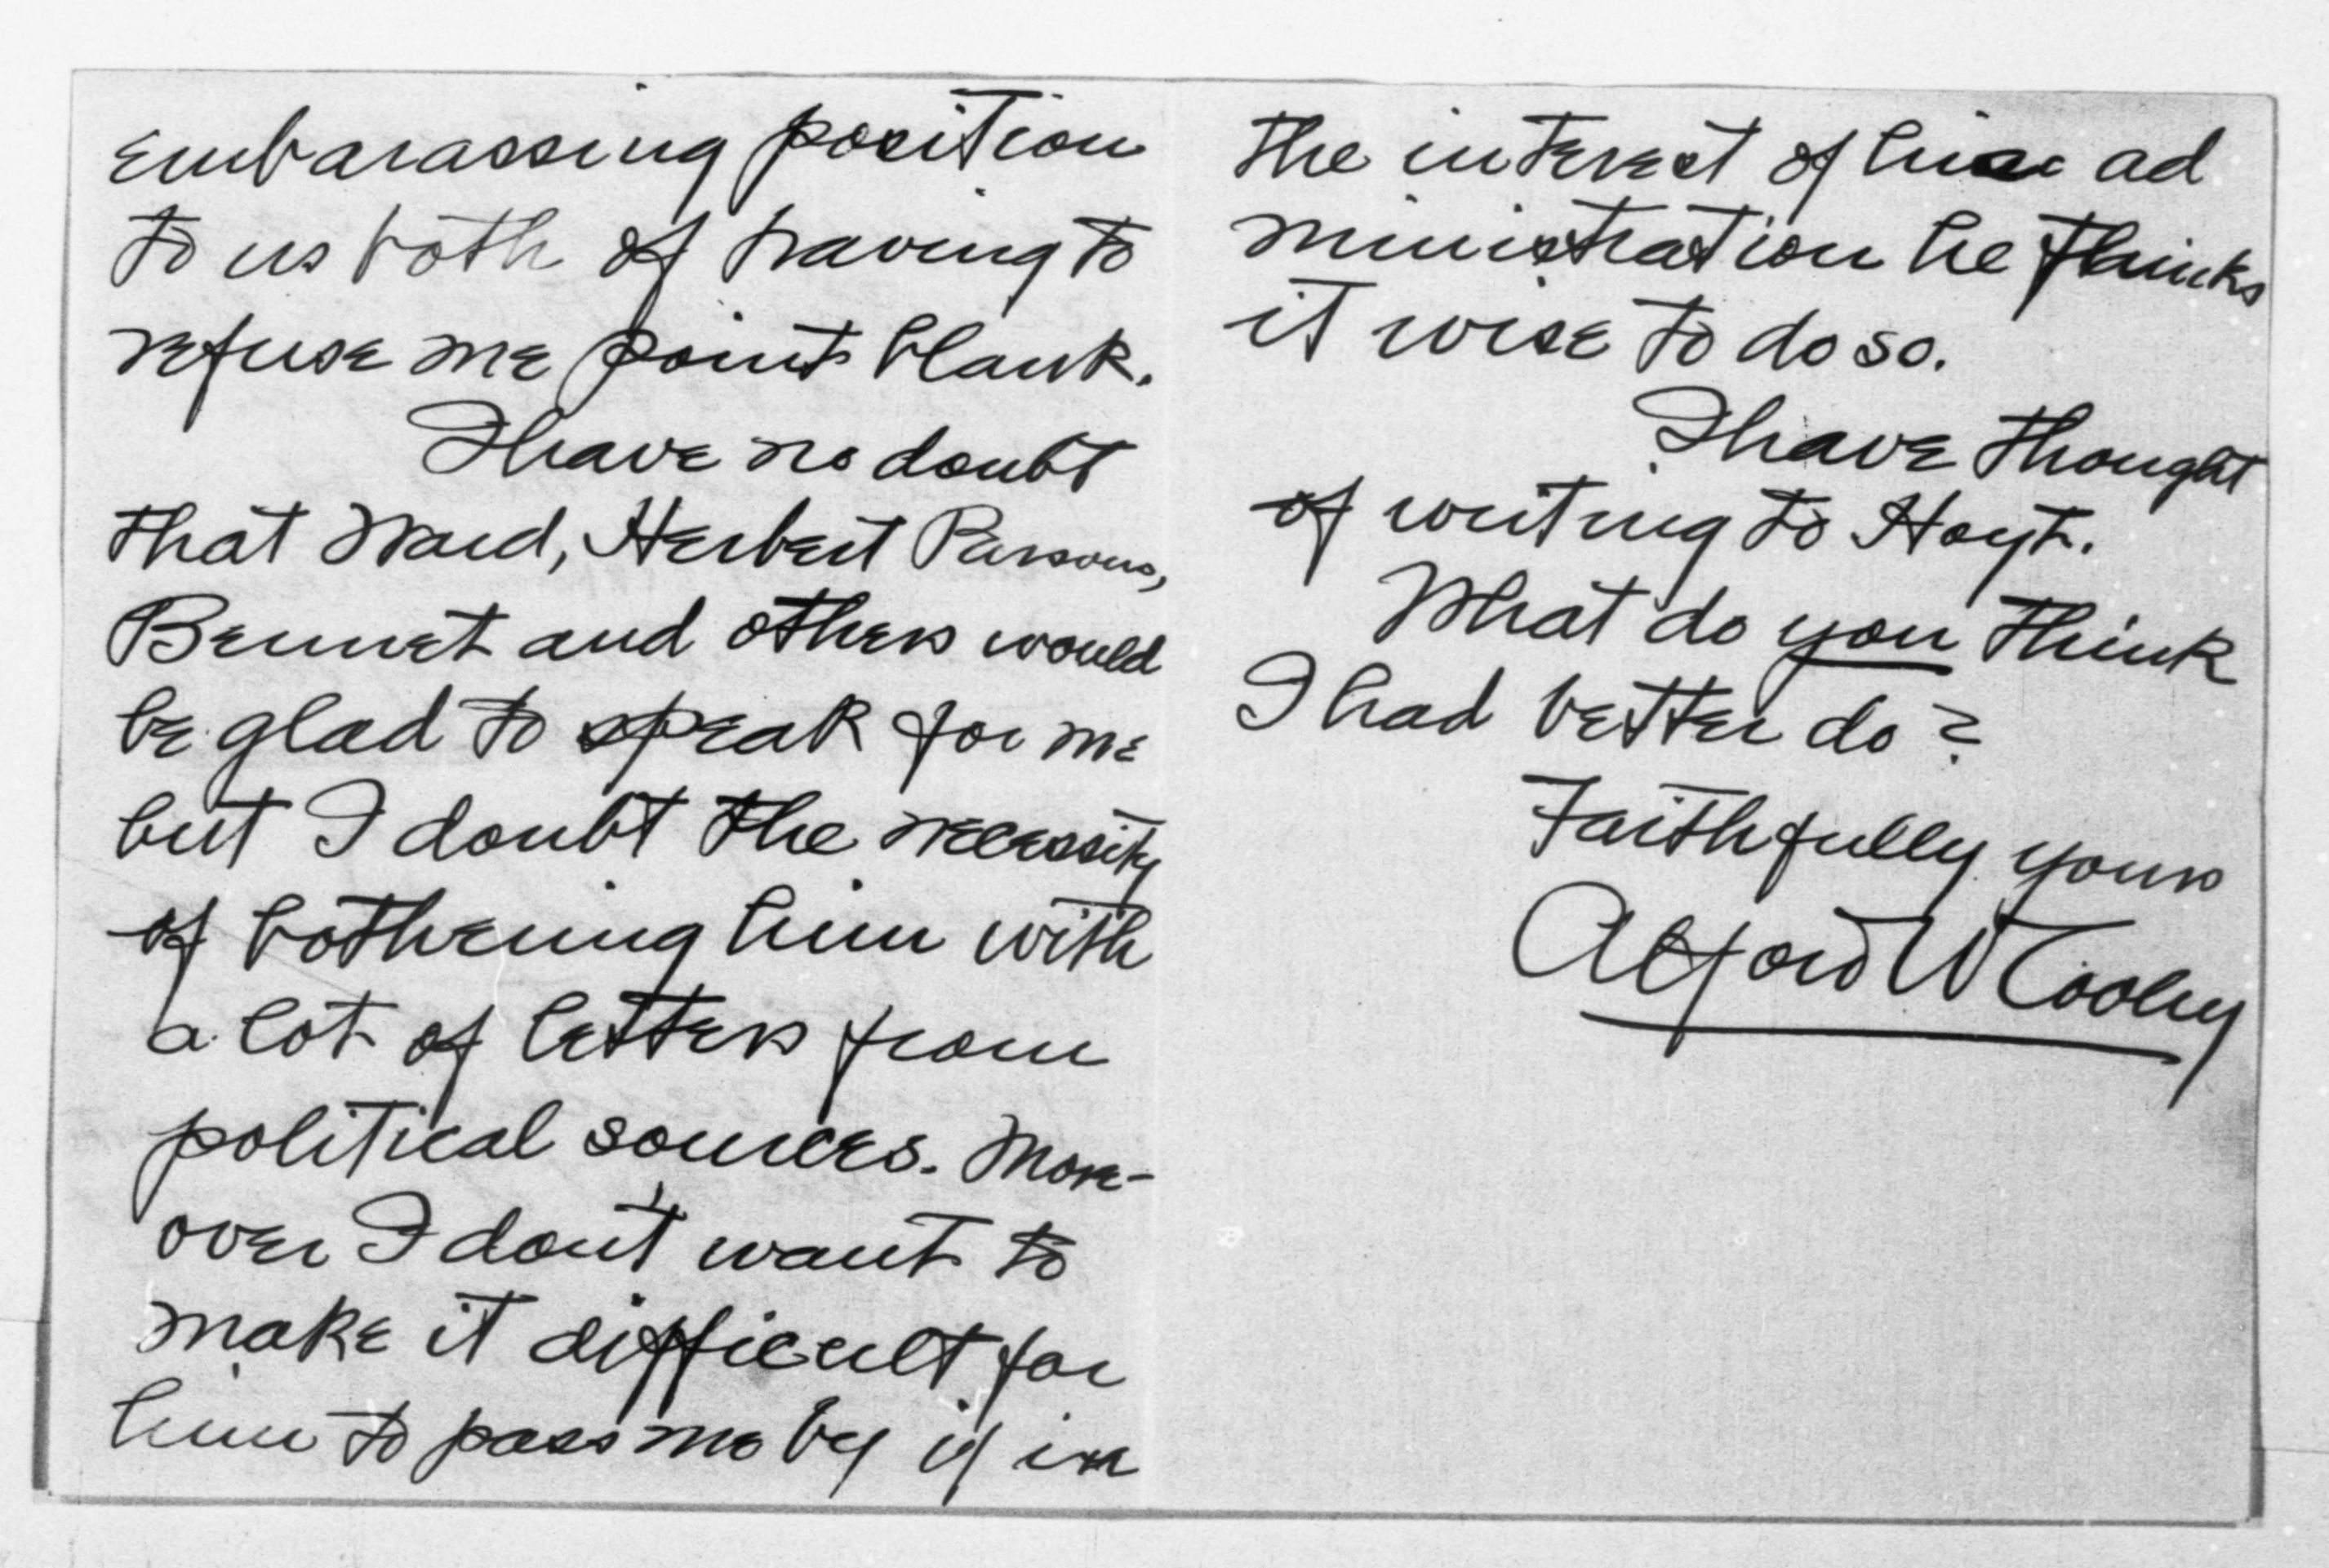 embarassing position
to us both of having to
refuse me point blank.
I have no doubt
that Ward, Herbert Parsons,
Bennet and others would
be glad to speak for me
but I doubt the necessity
of bothering him with
a lot of letters from
political sources. More-
over I don't want to
make it difficult for
him to pass me by if in
the interest of his ad
ministration he thinks
it wise to do so.
I have thought
of writing to Hoyt.
What do you think
I had better do?
Faithfully yours
Alford W Cooley